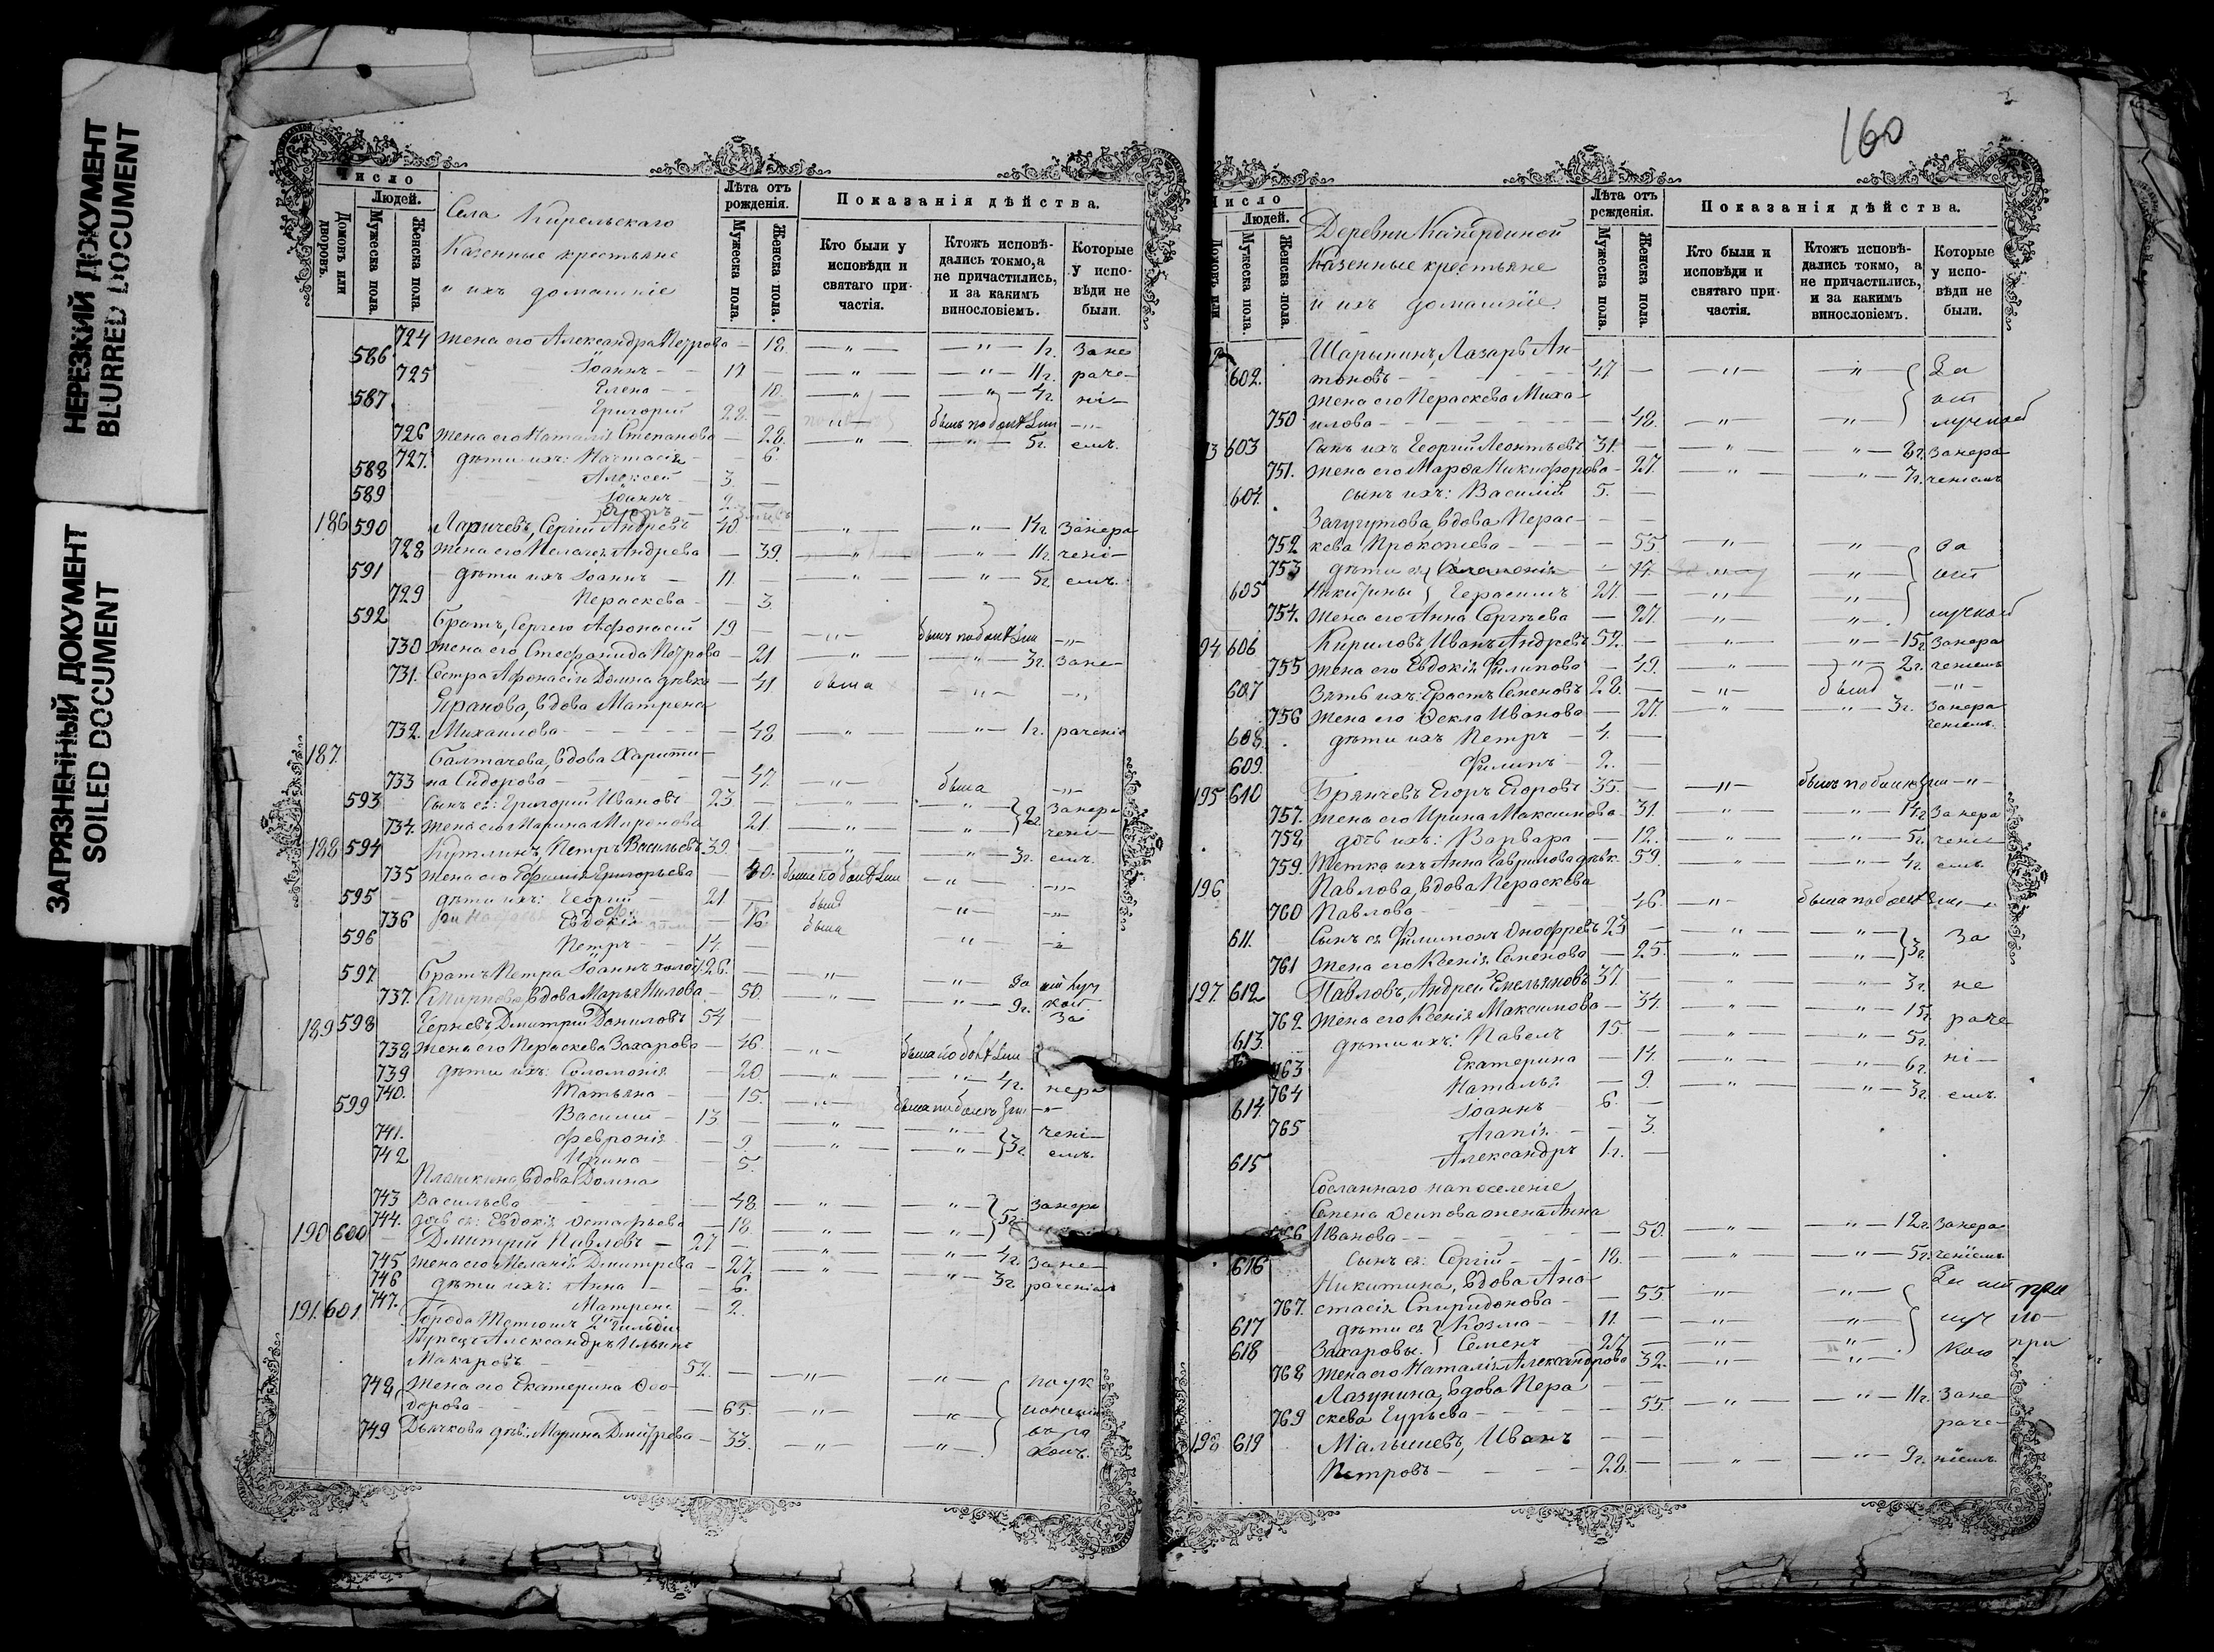 НЕРЕЗКИЙ ДОКУМЕНТ
BLURRED DOCUMENT
ЗАГРЯЗНЕННЫЙ ДОКУМЕНТ
SOILED DOCUMENT
Число
Людей.
Домовъ или дворовъ.
Мужеска пола.
Женска пола
Села Кирельскаго
Казенные крестьяне
и ихъ домашніе
Лѣта отъ рожденія.
Мужеска пола.
Женска пола.
Показанія дѣйства.
Кто были у исповѣди и святаго причастія.
Ктожъ исповѣдались токмо, а не причастились, и за какимъ винословіемъ.
Которые у исповѣди не были.
724 жена его Александра Петрова — 18 — " — — " — 1г. Зане
586 Іоаннъ — 11г. раче-
725 Елена — 10. — " — 4г. ні-
587 Григорій 28. —
726 Жена его Наталія Степанова — 28. — " — 5г. емъ.
727. дѣти ихъ: Настасія — 6.
588 Алексей — 3. —
589 Іоаннъ — 2. —
186 590 Ларичевъ, Сергій Андревъ 40. — " — — " — 14г. Занера
728 жена его Пелагея Андрева — 39. — " — — " — 11г. чені-
591 дѣти ихъ Іоаннъ — 11 — " — — " — 5г. емъ.
729 Пераскева — 3.
592 Братъ, Сергею Афонасій 19 — " —
730 Жена его Стефанида Петрова — 21 — " — — " — 3г. Зане-
731. Сестра Афонасія Домна дѣвка — 41. была — " — — " —
вдова Матрена
732. Михаилова — 48 — " — — " — 1г. раченіе
187. Балтачева, вдова Харити-
733 на Сидорова — 47. — " — была — " —
593 Сынъ ея: Григорій Ивановъ 23. — " — — " — 2г. Занера
734. жена его Марина Миронова 21. — " — — " — чені-
188 594 Кутлинъ, Петръ Васильевъ 39. — " — — " — 3г. емъ.
735 жена его Ефимія Григорьева — 40.
595 дѣти ихъ: Георгій — 21 — былъ — " — — " —
736 Евдокія — 16 была — " — — " —
596 Петръ — 14. — — " —
597 Братъ Петра Іоаннъ холос. 26. — " — — " — За отлуч
737. Смирнова, вдова Марья Нилова — 50. — " — — " — 9г. кой
189 598 Черневъ Дмитрій Даниловъ 54 — За
738 жена его Пераскева Захарова — 46. — " —
739 дѣти ихъ: Соломонія — 20. — " — — " — 4г. нера
740. Татьяна — 15. — " —
599 Василій — 13 — " — — " — чені-
741. Февронія — 9. — " — — " — 3г. емъ.
742 Ирина — 5.
Плашкина, вдова Домна
743 Васильева — 48. — " — — " — Занера
744. дочь ея: Евдокія Остафьева — 18. — " — — " — 5г.
190 600 Дмитрій Павловъ — 27 — " — — " — 4г. Зане-
745 жена его Меланія Дмитрева — 27. — " — — " — 3г. раченіемъ
746 дѣти ихъ: Анна — 6.
747. Матрена — 2.
191. 601 Города Тетюшъ 2й гильдіи
Купецъ Александръ Ильинъ
Макаровъ — 52. — " — — " —
748 жена его Екатерина Фео-
дорова — 65. — " — — " —
749 Дьячкова дѣв: Марина Дмитрева — 33. — " — — " —
160
Число
Людей.
Мужеска пола.
Женска пола.
Деревни Каhердиной
Казенные крестьяне
и ихъ домашніе
Лѣта отъ рожденія.
Мужеска пола.
Женска пола.
Показанія дѣйства.
Кто были и исповѣди и святаго причастія.
Ктожъ исповѣдались токмо, а не причастились, и за какимъ винословіемъ.
Которые у исповѣди не были.
Шарынинъ, Лазарь Ан-
602. тоновъ — 47 — " — — " — За
жена его Пераскева Миха- от
750 илова — 48. — " — — " — лучкой
603 Сынъ ихъ Георгій Леонтьевъ 31. — " — — " — 8г. Занера
751. жена его Марфа Никифорова — 27. — " — — " — 7г. ченіемъ
604. сынъ ихъ: Василій 5. —
вдова Перас-
752 кева Прокопіева — 55. — " — — " — За
753 дѣти ея — 17. — " — — " — от
605 Никитины Герасимъ 27. — " — — " —
754. жена его Анна Сергѣева — 27. — " — — " — лучкой
606 Кириловъ, Иванъ Андревъ 52. — " — — " — 15г. Занера
755 жена его Евдокія Филипова — 49. — " — — " — 2г. ченіемъ
607 Зять ихъ: Ерастъ Семеновъ 28. — " — былъ — " —
756 жена его Фекла Иванова — 27. — " — — " — 3г. Занера
ченіемъ
608. дѣти ихъ Петръ — 4. —
609. Филипъ — 2. —
195 610 Брянчевъ Егоръ Егоровъ 35. — " —
757. жена его Ирина Максимова — 31. — " — — " — 14г. Занера
758 дочь ихъ: Варвара — 12. — " — — " — 5г. чені
759. Тетка ихъ Анна Гаврилова дѣвк. 59. — " — — " — 4г. емъ.
196 Павлова, вдова Пераскева
760 Павлова — 46. — " —
611. Сынъ ея Филимонъ Онофревъ 23 — " — — " — За
761 жена его Ксенія Семенова — 25. — " — — " — 3г.
197. 612 Павловъ, Андрей Емельяновъ 37. — " — — " — 3г. не
762. жена его Ксенія Максимова — 34. — " — — " — 15г. раче
613. дѣти ихъ: Павелъ 15. — " — — " — 5г.
763 Екатерина — 14. — " — — " — 6г. ні-
764 Наталья — 9. — " — — " — 3г. емъ.
614 Іоаннъ — 6. —
765 Агапія — 3.
615 Александръ 1г. —
Сосланнаго на поселеніе
Семена Осипова жена Анна
766 Иванова — 50. — " — — " — 12г. Занера
616 сынъ ея: Сергій — 18. — " — — " — 5г. ченіемъ
Никитина, вдова Ана- За от
767. стасія Спиридонова — 55. — " — — " —
617 дѣти ея Козма — 11. — " — — " — луч
618 Захаровы. Семенъ — 27. — " — — " — кою
768 жена его Наталія Александрова 32. — " — — " —
Лазунина, вдова Пера
769 скева Гурьева — 55. — " — — " — 11г. Зане
раче-
198 619 Малышевъ, Иванъ
Петровъ — 28. — " — — " — 9г. ніемъ.